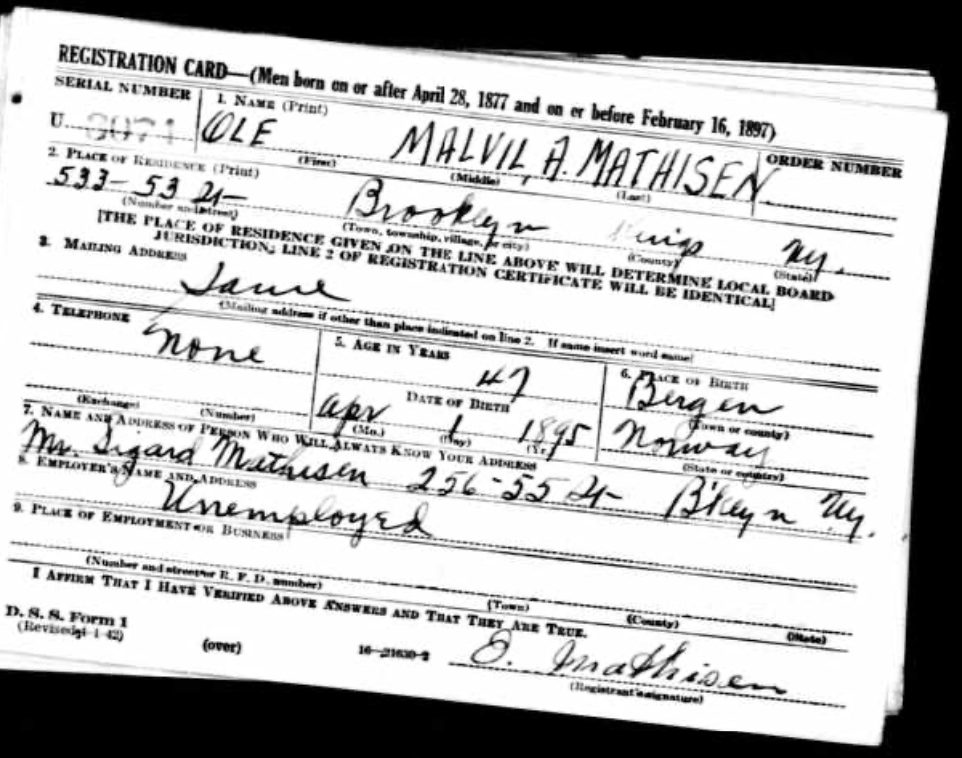 REGISTRATION CARD—(Men born on or after April 28, 1877 and on or before February 16, 1897)
SERIAL NUMBER 1. NAME (Print) ORDER NUMBER
U 3071 OLE MALVIL, A. MATHISEN
(First) (Middle) (Last)
2. PLACE OF RESIDENCE (Print)
533-53 St- Brooklyn Kings Ny.
(Number and street) (Town, township, village, or city) (County) (State)
[THE PLACE OF RESIDENCE GIVEN ON THE LINE ABOVE WILL DETERMINE LOCAL BOARD
JURISDICTION; LINE 2 OF REGISTRATION CERTIFICATE WILL BE IDENTICAL]
3. MAILING ADDRESS
Same
(Mailing address if other than place indicated on line 2. If same insert word same)
4. TELEPHONE 5. AGE IN YEARS 6. PLACE OF BIRTH
None 47 Bergen
DATE OF BIRTH (Town or county)
Apr 1 1895 Norway
(Exchange) (Number) (Mo.) (Day) (Yr.) (State or country)
7. NAME AND ADDRESS OF PERSON WHO WILL ALWAYS KNOW YOUR ADDRESS
Mr. Sigard Mathisen 256-55 St- B'klyn Ny.
8. EMPLOYER'S NAME AND ADDRESS
Unemployed
9. PLACE OF EMPLOYMENT OR BUSINESS
(Number and street or R. F. D. number) (Town) (County) (State)
I AFFIRM THAT I HAVE VERIFIED ABOVE ANSWERS AND THAT THEY ARE TRUE.
D. S. S. Form 1
(Revised 4-1-42) (over) 16—21630-2 O. Mathisen
(Registrant's signature)